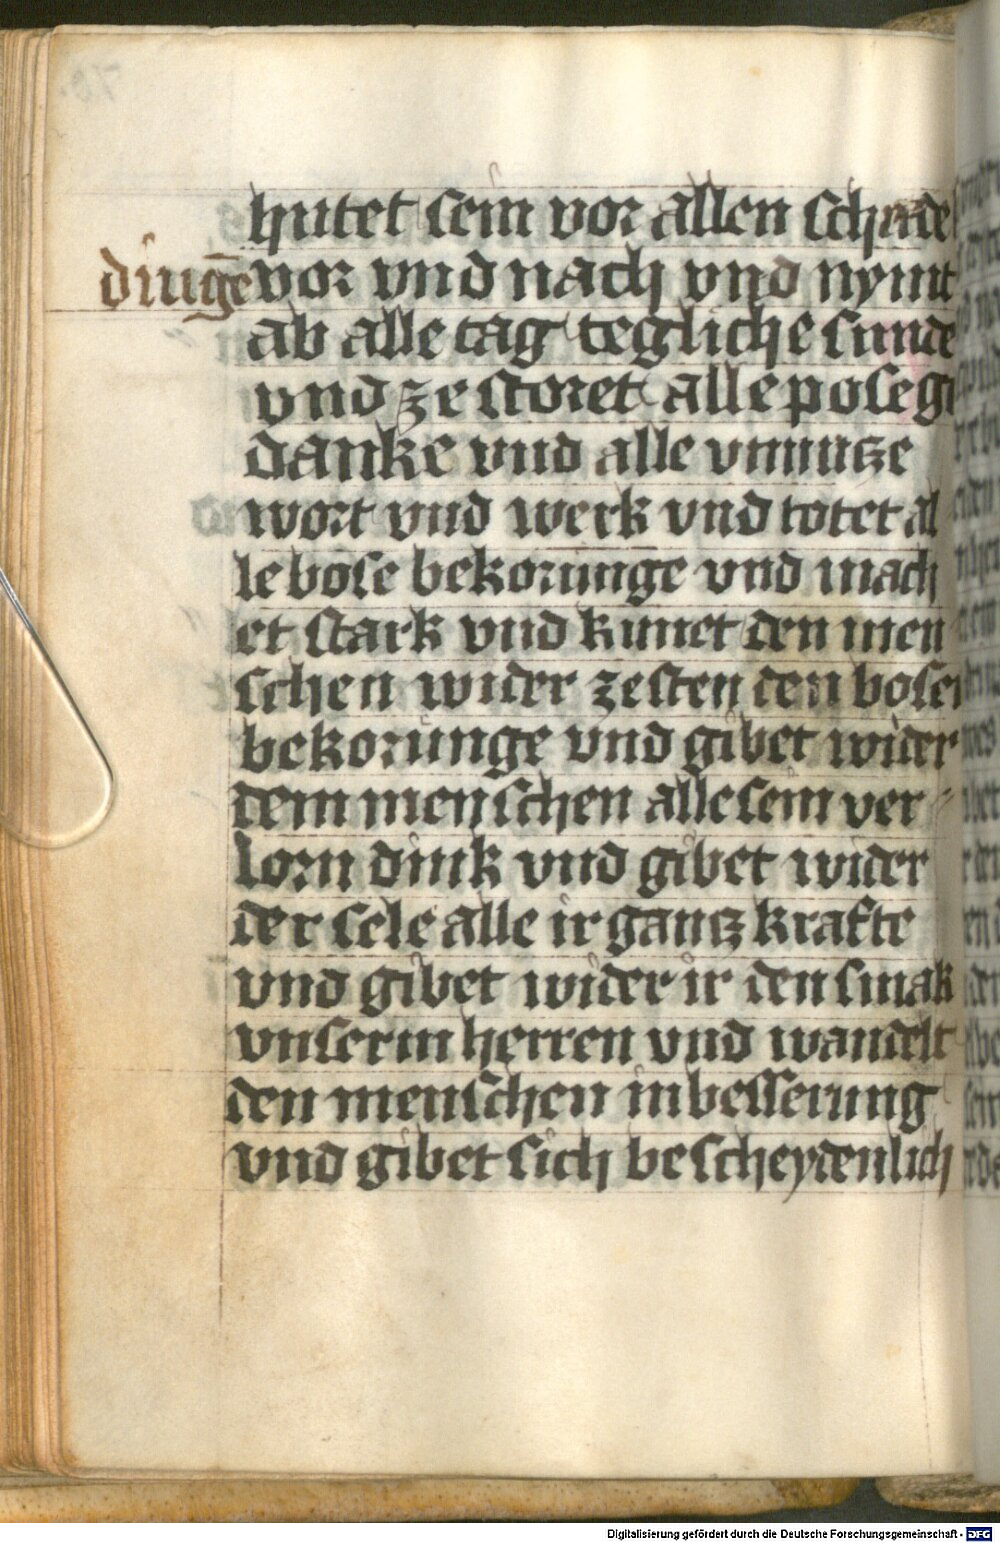 hutet sein vor allen schade
dingē vor vnd nach vnd nymt
ab alle tag tegliche sunde
vnd ze storet alle pose ge
danke vnd alle vnnutze
wort vnd werk vnd totet al
le bose bekorunge vnd mach
et stark vnd kunet den men
schen wider ze sten den bosen
bekorunge vnd gibet wider
dem menschen alle sein ver
lorn dink vnd gibet wider
der sele alle ir gantz krafte
vnd gibet wider ir den smak
vnserm herren vnd wandelt
den menschen in besserung
vnd gibet sich bescheydenlich
Digitalisierung gefördert durch die Deutsche Forschungsgemeinschaft - DFG